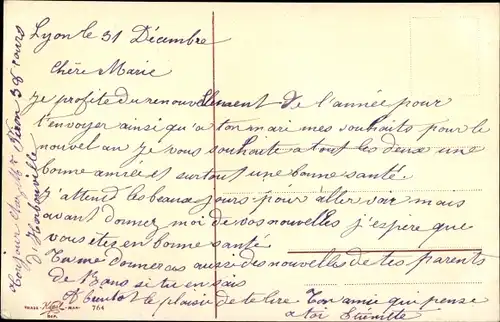 Lyon le 31 Décembre
Chère Marie
Je profite du renouvellement de l'année pour
t'envoyer ainsi qu'a ton mari mes souhaits pour le
nouvel an je vous souhaite a tous les deux une
bonne année et surtout une bonne santé.
J'attend les beaux jours pour aller voir mais
avant donnez moi de vos nouvelles j'espère que
vous êtes en bonne santé
Tu me donneras aussi des nouvelles de tes parents
de si tu en sais
A bientot le plaisir de te lire Ton amie qui pense
a toi
Toujour chez Mr 38 cours
d'Herbouville
7/14
DEP.